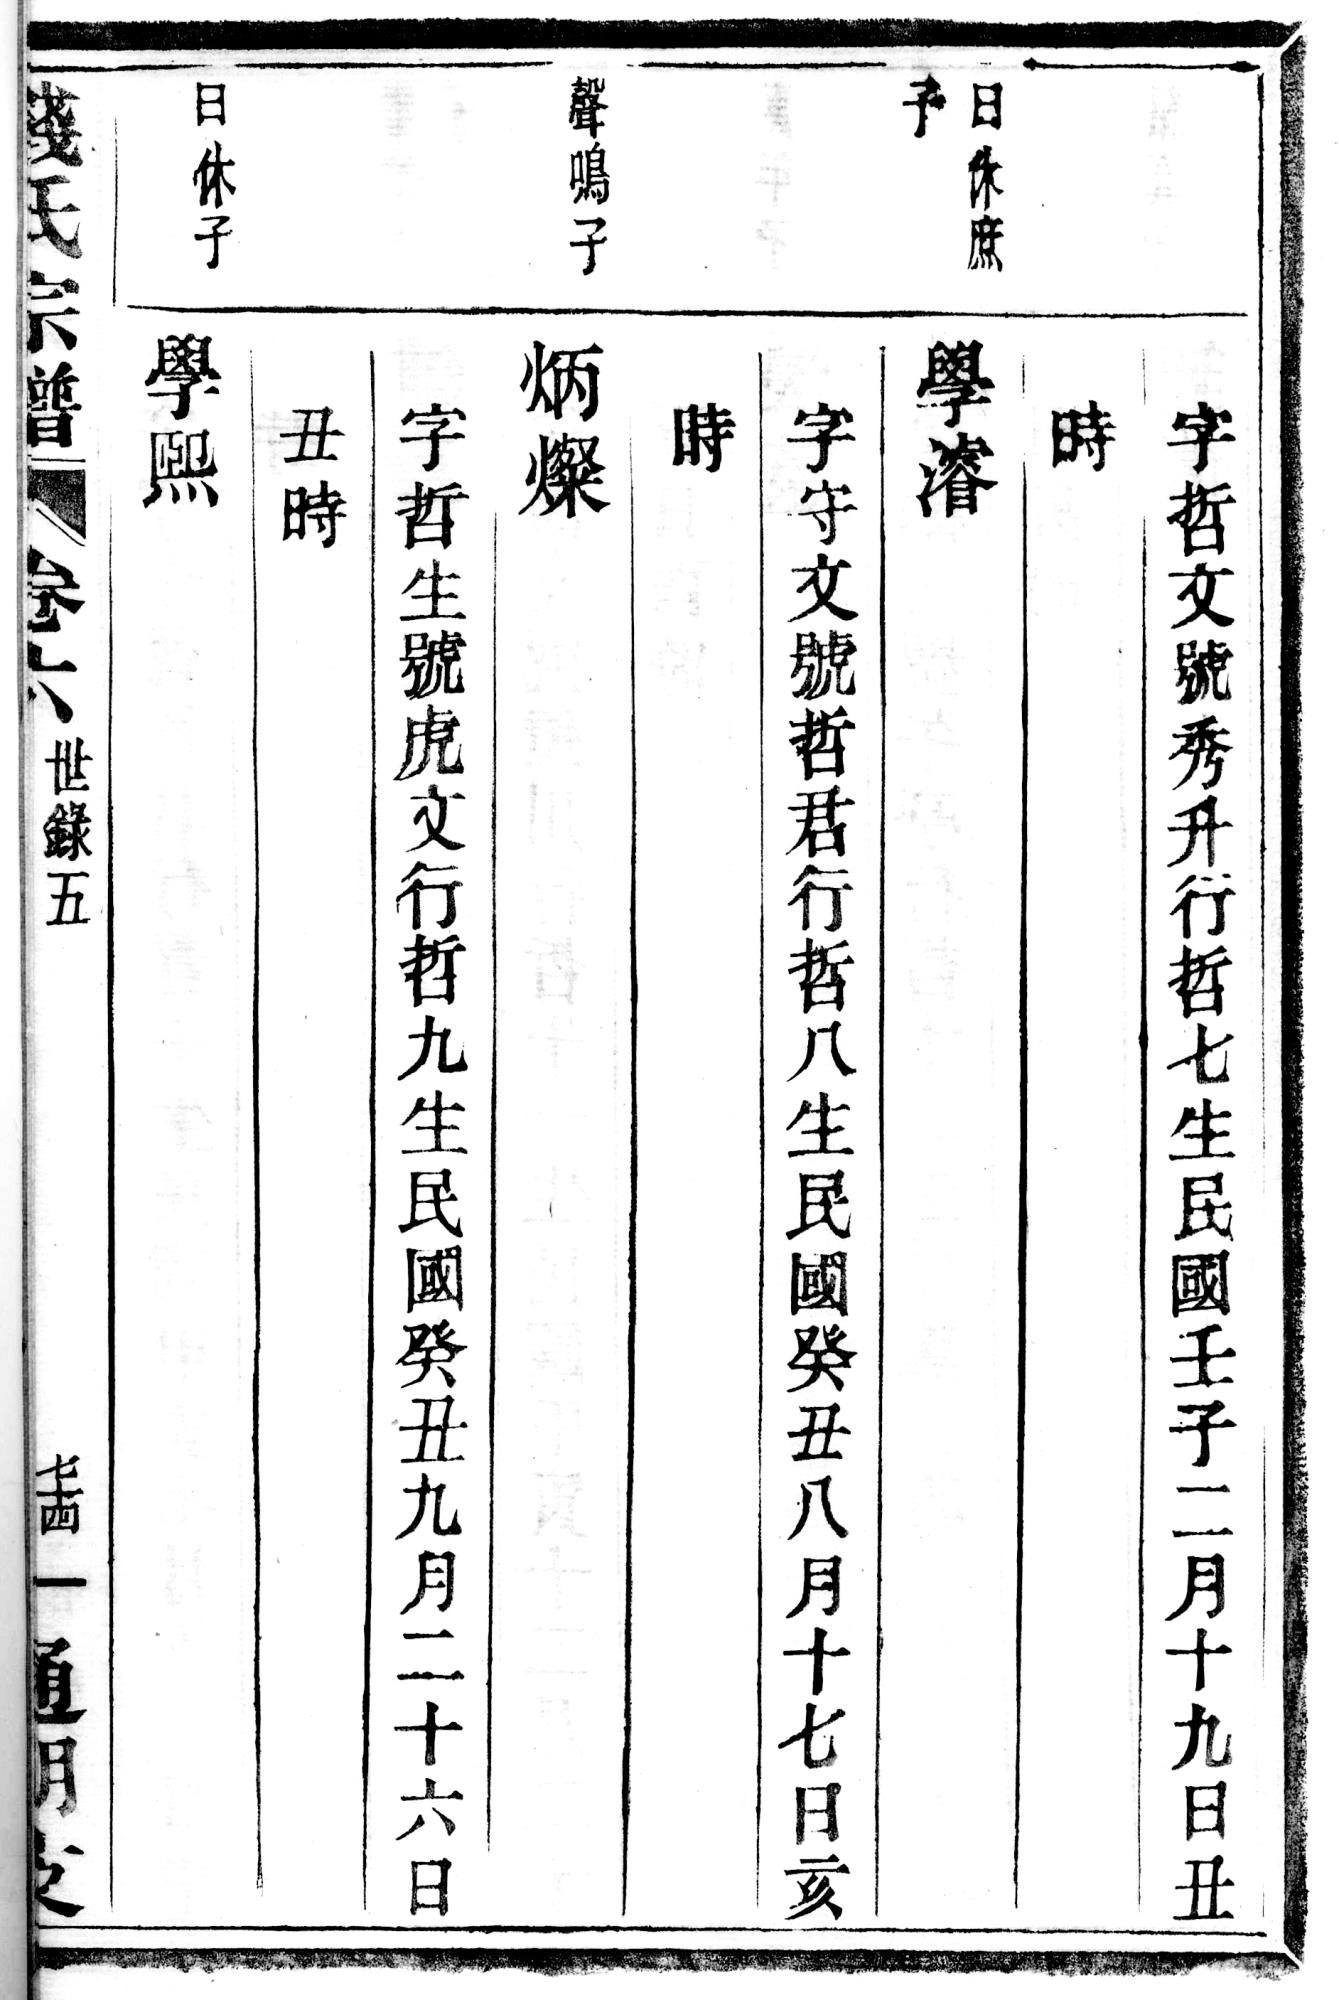 字哲文號秀升行哲七生民國壬子二月十九日丑
時
日休庶
子
學濬
字守文號哲君行哲八生民國癸丑八月十七日亥
時
聲鳴子
炳燦
字哲生號虎文行哲九生民國癸丑九月二十六日
丑時
日休子
學熙
錢氏宗譜
卷六
世錄五
七十四
通明支